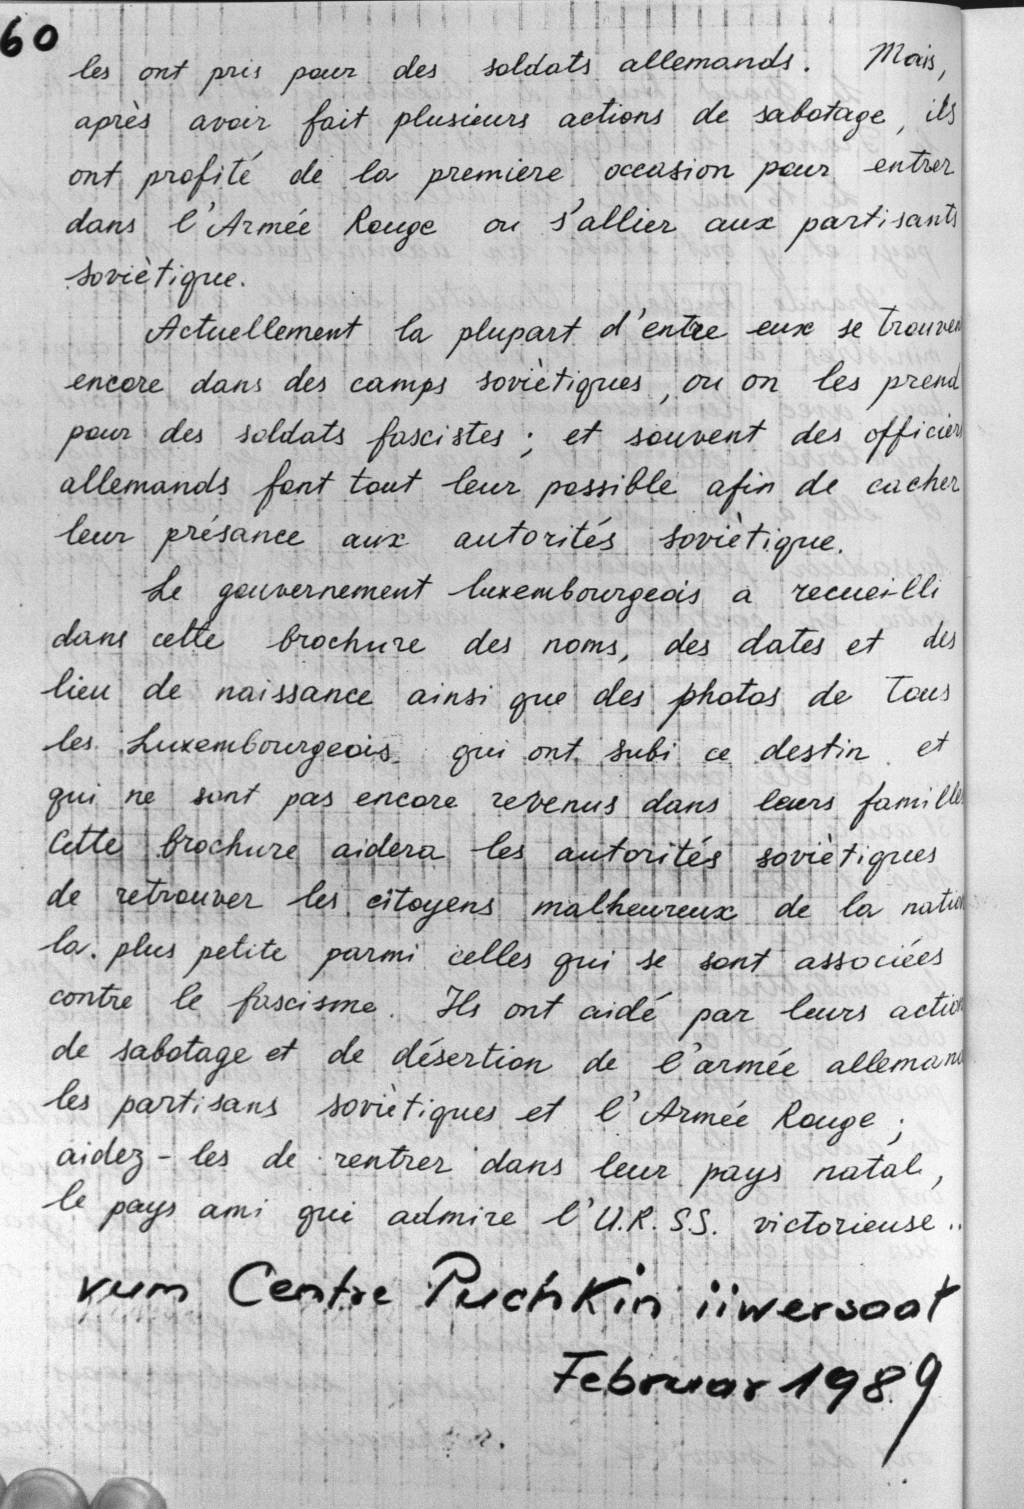 60
les ont pris pour des soldats allemands. Mais,
après avoir fait plusieurs actions de sabotage, ils
ont profité de la première occasion pour entrer
dans l'Armée Rouge ou s'allier aux partisants
soviètique.
Actuellement la plupart d'entre eux se trouven
encore dans des camps soviètiques, ou on les prend
pour des soldats fascistes; et souvent des officiers
allemands font tout leur possible afin de cacher
leur présance aux autorités soviètique.
Le gouvernement luxembourgeois a recueilli
dans cette brochure des noms, des dates et des
lieu de naissance ainsi que des photos de tous
les Luxembourgeois qui ont subi ce destin et
qui ne sont pas encore revenus dans leurs familles
Cette brochure aidera les autorités soviètiques
de retrouver les citoyens malheureux de la natio
la plus petite parmi celles qui se sont associées
contre le fascisme. Ils ont aidé par leurs action
de sabotage et de désertion de l'armée alleman
les partisans soviètiques et l'Armée Rouge;
aidez-les de rentrer dans leur pays natal,
le pays ami qui admire l'U.R.S.S. victorieuse..
vum Centre Puchkin iiwersaat
Februar 1989